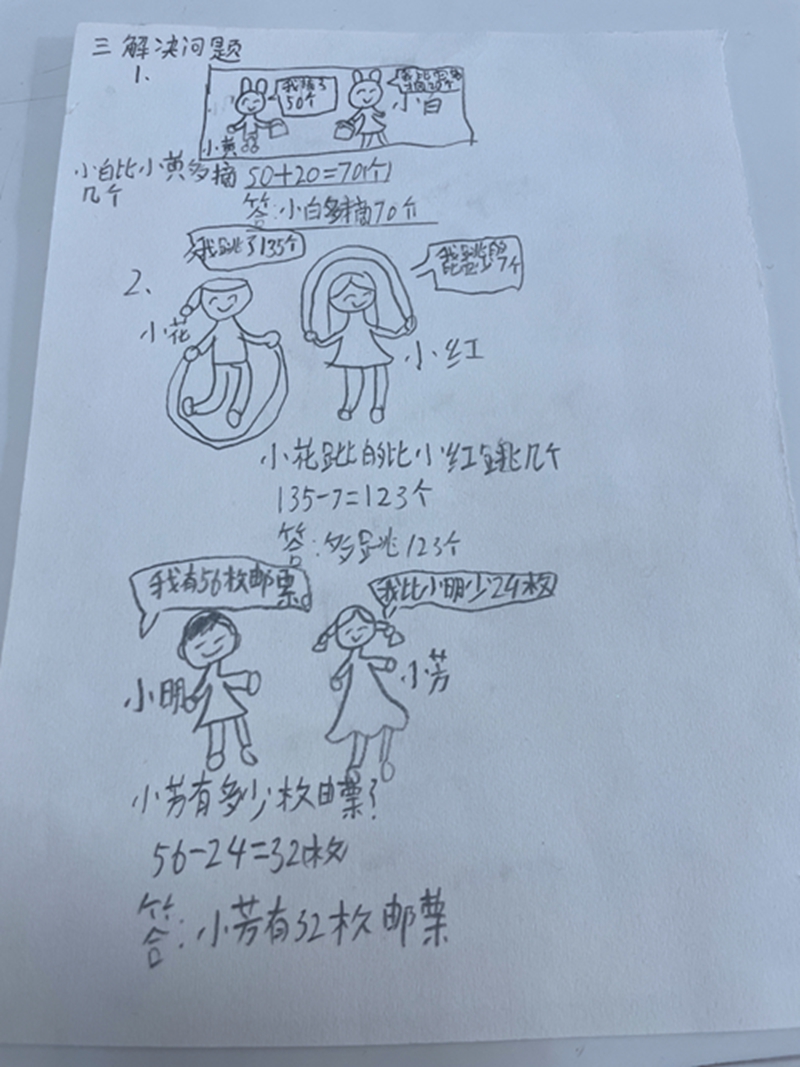 三 解决问题
1、
我摘了
50个
小黄
小白
小白比小黄多摘
几个
50+20=70个
答:小白多摘70个
2、
我跳了135个
小花
小红
小花跳的比小红多跳几个
135-7=123个
答:多跳123个
我有56枚邮票。
我比小明少24枚
小明
小芳
小芳有多少枚邮票?
56-24=32枚
答:小芳有32枚邮票